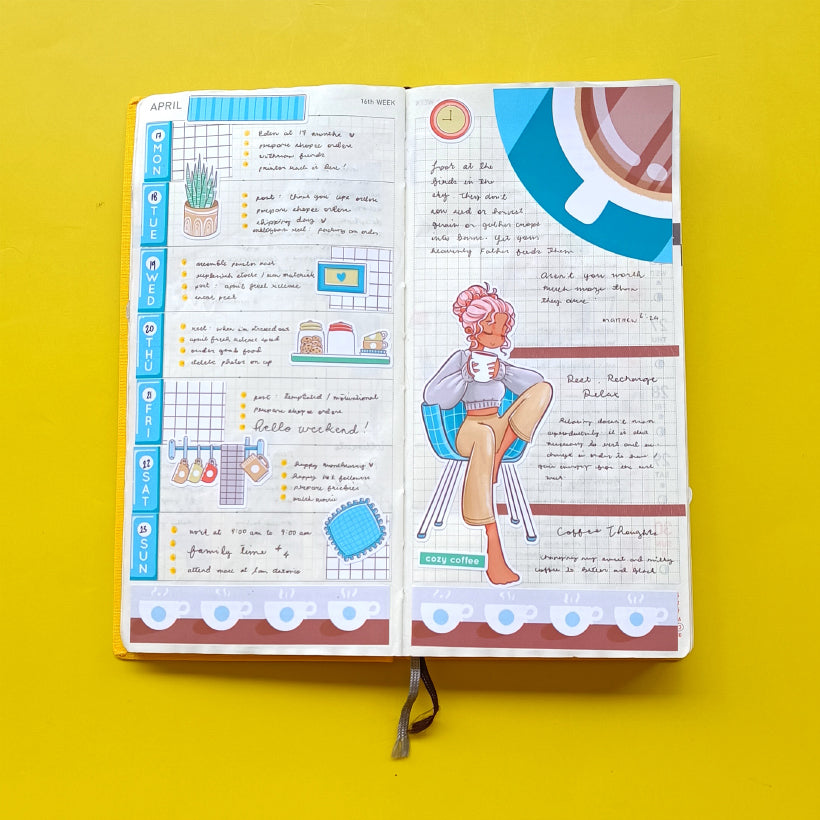 APRIL
16th WEEK
17
MON
Eden at 19 months
prepare shopee orders
withdraw funds
18
TUE
post: thank you cape orders
prepare shopee orders
shipping day
packing an order
19
WED
replenish stocks / raw materials
post: april fresh release
sneak peek
20
THU
reel: when i'm stressed out
april fresh release speed
order grab food
delete photos on cp
21
FRI
post: templated / motivational
prepare shopee orders
hello weekend!
22
SAT
happy monthsary
happy 10k followers
prepare freebies
watch movie
23
SUN
work at 8:00 am to 9:00 am
family time
attend mass at San Antonio
Look at the
birds in the
sky They don't
sow seed or harvest
grain or gather crops
into barns. Yet your
heavenly Father feeds them
Aren't you worth
much more than
they are
Matthew 6:26
Rest, Recharge
Relax
Relaxing doesn't mean
unproductivity it is also
necessary to rest and re-
charge in order to have
energy for the next
week
Coffee Thoughts
changing my sweet and milky
coffee to Bitter and Black
cozy coffee